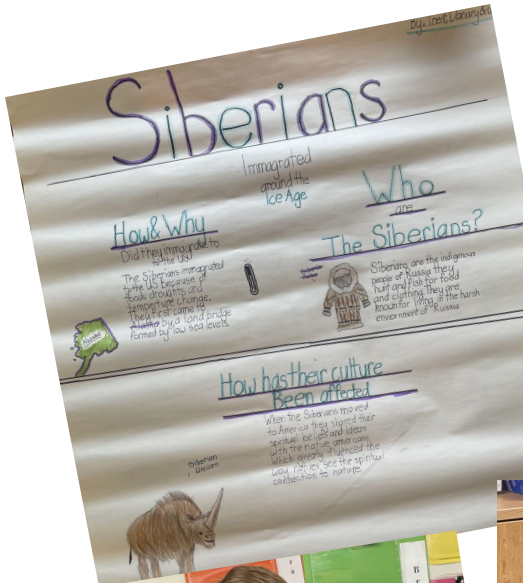 Siberians
Immagrated
around the
Ice Age
How & Why
Did they immagrate to
to the US?
The Siberians immagrated
to the US because of
foods droughts, and
temperture change.
They first came to
Alaska by a land bridge
formed by low sea levels.
Alaska
Who
are
The Siberians?
Siberians are the indigenous
people of Russia they
hunt and fish for food
and clothing. They are
known for living in the harsh
envirorment of Russia
How has their culture
Been affected
When the Siberians moved
to America they shared their
spiritual beliefs and ideas
with the native americans
which greatly influenced the
way see the spiritual
connection to nature
Siberian
unicorn